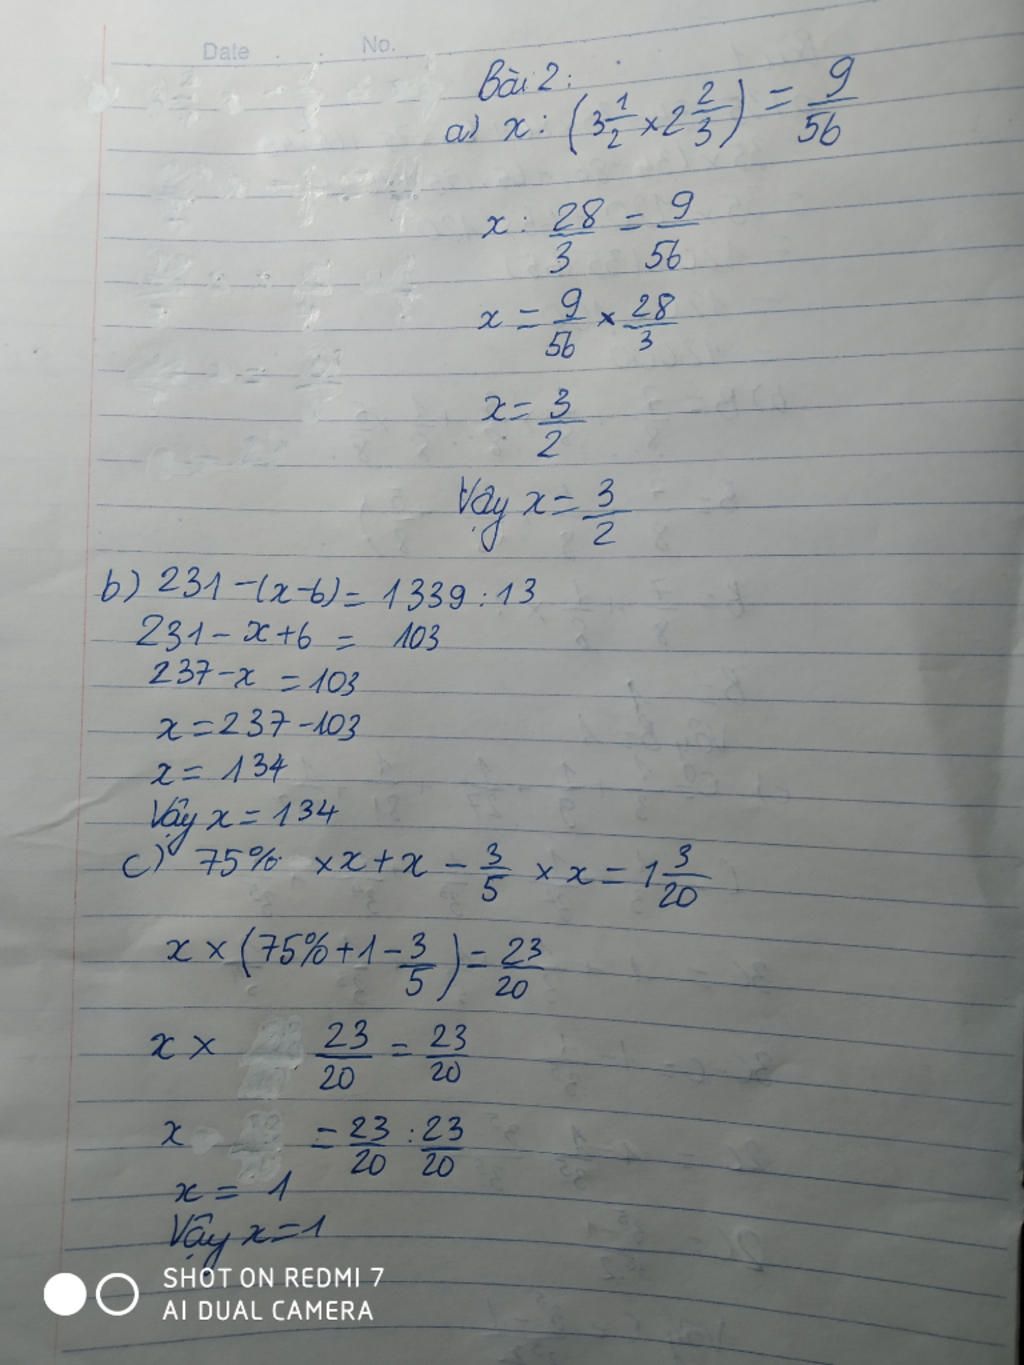 Date No.
Bài 2:
a) x : (3 1/2 × 2 2/3) = 9/56
x : 28/3 = 9/56
x = 9/56 × 28/3
x = 3/2
Vậy x = 3/2
b) 231 - (x - 6) = 1339 : 13
231 - x + 6 = 103
237 - x = 103
x = 237 - 103
x = 134
Vậy x = 134
c) 75% × x + x - 3/5 × x = 1 3/20
x × (75% + 1 - 3/5) = 23/20
x × 23/20 = 23/20
x = 23/20 : 23/20
x = 1
Vậy x = 1
SHOT ON REDMI 7
AI DUAL CAMERA